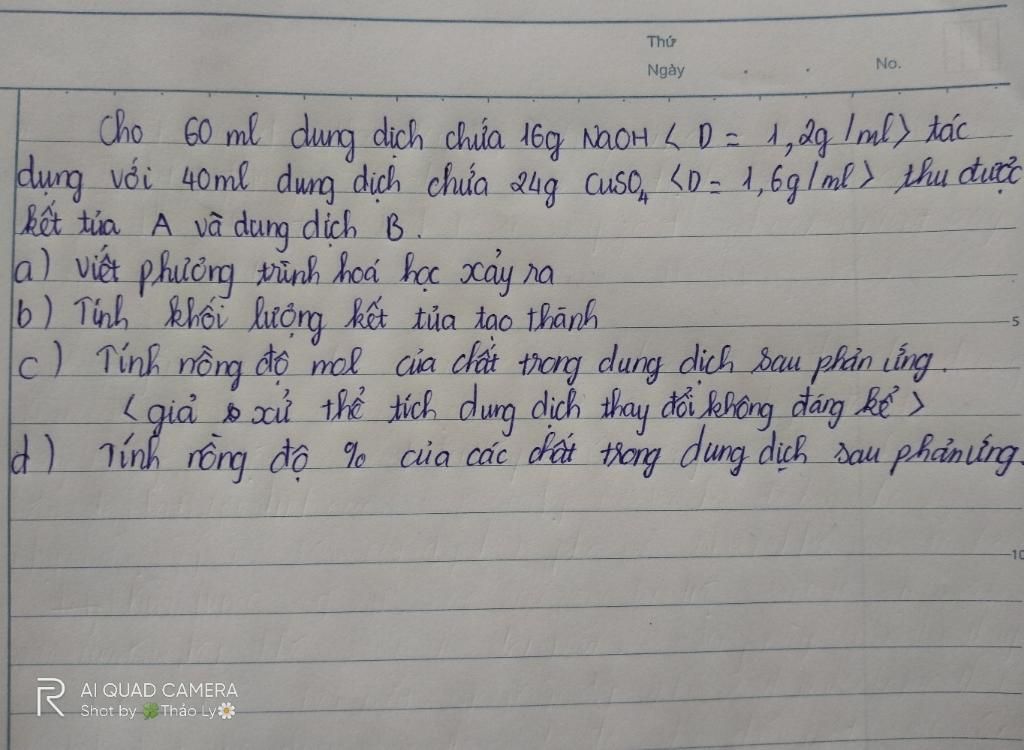 Thứ
Ngày
No.
Cho 60 ml dung dịch chứa 16g NaOH < D = 1,2g/ml> tác
dụng với 40ml dung dịch chứa 24g CuSO4 <D= 1,6g/ml> thu được
kết tủa A và dung dịch B.
a) Viết phương trình hoá học xảy ra
b) Tính khối lượng kết tủa tạo thành
5
c) Tính nồng độ mol của chất trong dung dịch sau phản ứng.
<giả xử thể tích dung dịch thay đổi không đáng kể>
d) Tính nồng độ % của các chất trong dung dịch sau phản ứng.
10
AI QUAD CAMERA
Shot by 🍀Thảo Ly🌼